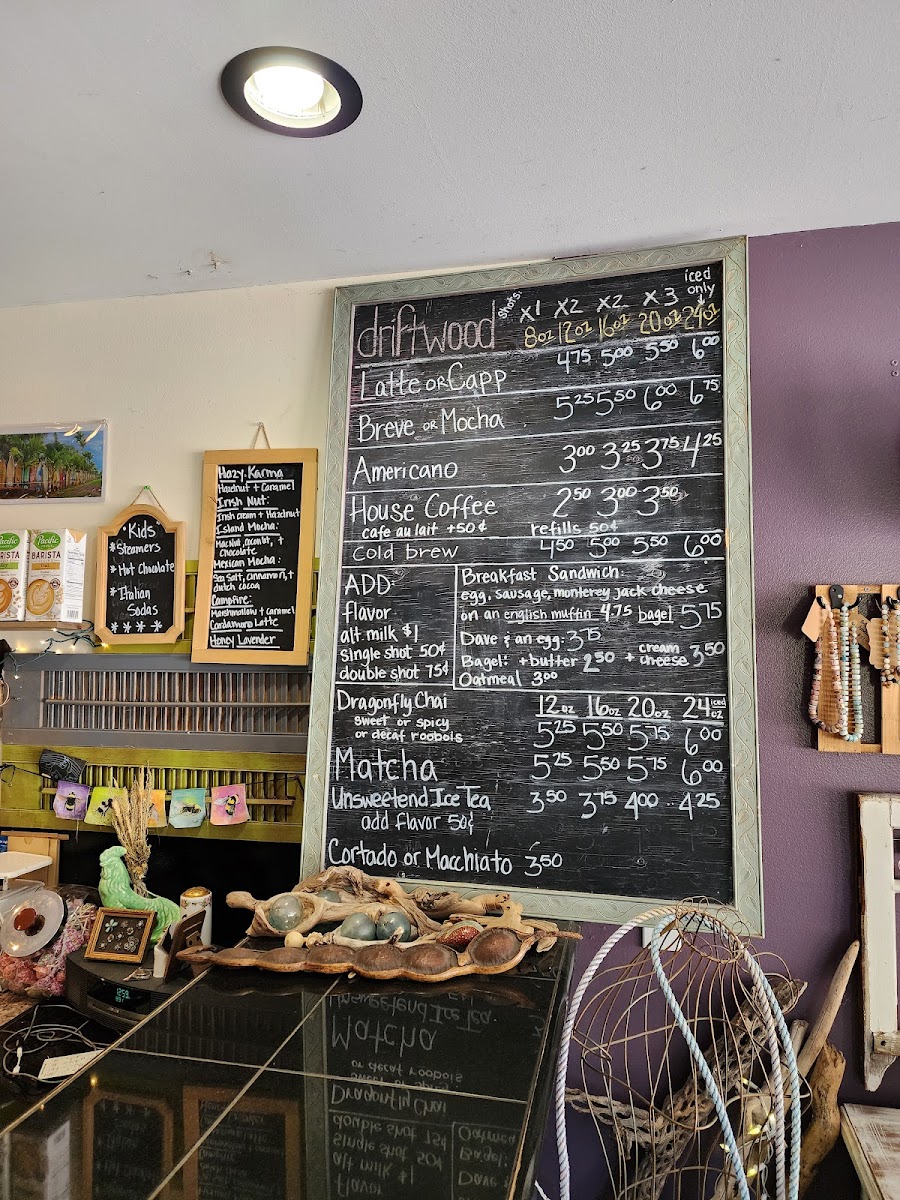 driftwood
shots: x1 x2 x2 x3 iced only
8oz 12oz 16oz 20oz 24oz
Latte or Capp 4 75 5 00 5 50 6 00
Breve or Mocha 5 25 5 50 6 00 6 75
Americano 3 00 3 25 3 75 4 25
House Coffee 2 50 3 00 3 50
cafe au lait +50¢ refills 50¢
cold brew 4 50 5 00 5 50 6 00
ADD:
flavor
alt milk $1
single shot 50¢
double shot 75¢
Breakfast Sandwich:
egg, sausage, monterey Jack cheese
on an english muffin 4.75 bagel 5 75
Dave & an egg: 3 75
Bagel: +butter 2 50 + cream cheese 3 50
Oatmeal 3 00
Dragonfly Chai 12oz 16oz 20oz 24oz iced
sweet or spicy 5 25 5 50 5 75 6 00
or decaf roobois
Matcha 5 25 5 50 5 75 6 00
Unsweetend Ice Tea 3 50 3 75 4 00 4 25
add flavor 50¢
Cortado or Macchiato 3 50
Hazy Karma
Hazelnut + Caramel
Irish Nut:
Irish cream + Hazelnut
Island Mocha:
Mac Nut, coconut, +
Chocolate
Mexican Mocha:
Sea Salt, cinnamon, +
dutch cocoa
Campfire:
Marshmallow + caramel
Cardamom Latte
Honey Lavender
"Kids"
*Steamers
*Hot Chocolate
*Italian
Sodas
* * * * *
Pacific
BARISTA
Pacific
BARISTA